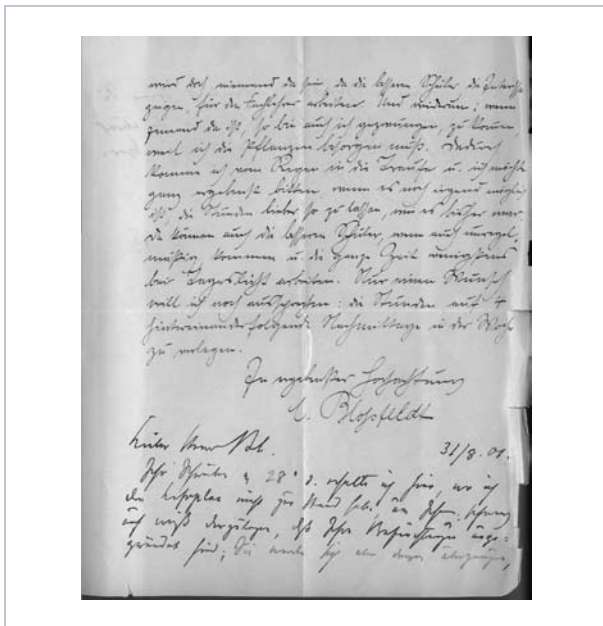 wird doch niemand da sein, da die besseren Schüler die Interesse
zeigen, für den Fachlehrer arbeiten. Und wiederum; wenn
jemand da ist, so bin auch ich gezwungen, zu kommen
weil ich die Pflanzen besorgen muß. Dadurch
komme ich vom Regen in die Traufe u. ich möchte
ganz ergebenst bitten wenn es noch irgend möglich
ist, die Stunden lieber so zu lassen, wie es bisher war.
Da können auch die besseren Schüler, wenn auch unregel-
mäßig kommen u. die ganze Zeit wenigstens
bei Tageslicht arbeiten. Nur einen Wunsch
will ich noch aussprechen: die Stunden auf 4
hintereinanderfolgende Nachmittage in der Woche
zu verlegen.
In ergebenster Hochachtung
C. Bloßfeldt
Lieber Herr Bl.
31/8. 01.
Ihr Schreiben v. 28. d. erhalte ich hier, wo ich
den Lehrplan nicht zur Hand habe, um
auch daß Ihre Befürchtungen
gründet sind; Sie werden sich